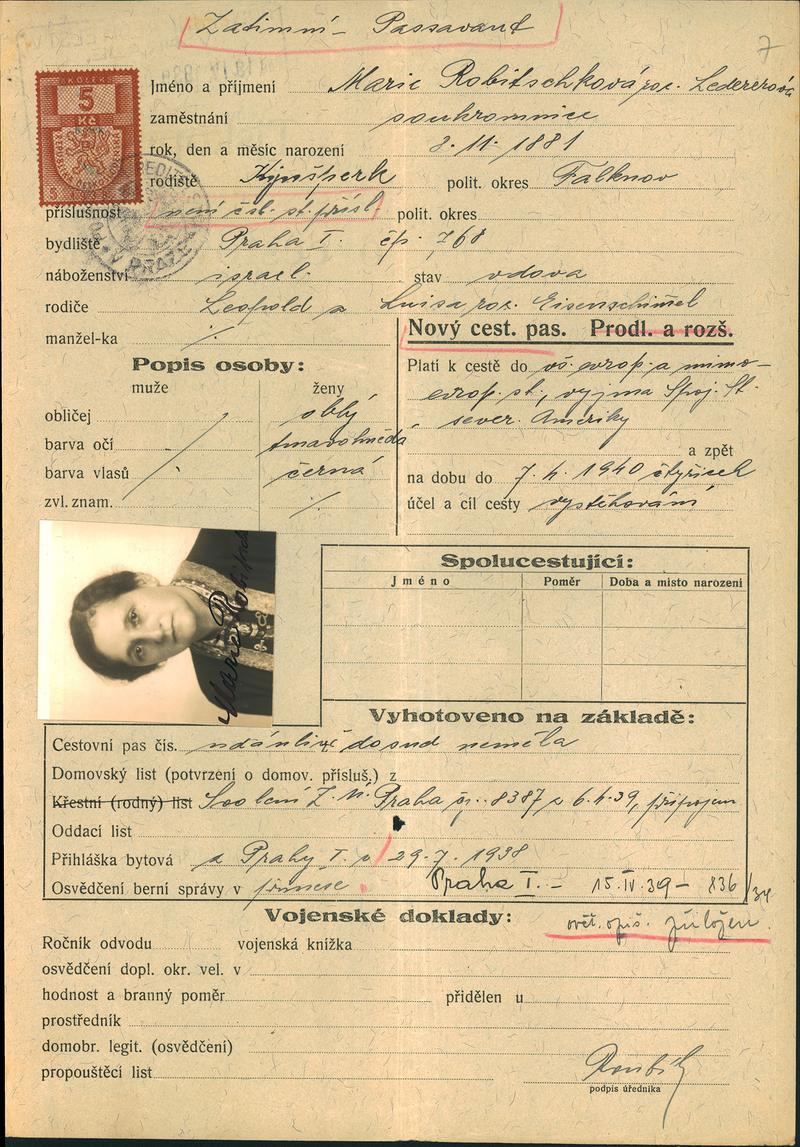 Zatímní - Passavant
7
KOLEK
5
Kč
Jméno a příjmení Marie Robitschková roz. Ledererová
zaměstnání soukromnice
rok, den a měsíc narození 2. 11. 1881
rodiště Kynšperk polit. okres Falknov
příslušnost není čsl. st. přísl. polit. okres
bydliště Praha I. čp. 768
náboženství israel. stav vdova
rodiče Leopold a Luisa roz. Eisenschimel
manžel-ka %
Nový cest. pas. Prodl. a rozš.
Popis osoby:
muže ženy
obličej oblý
barva očí tmavohnědá
barva vlasů černá
zvl. znam. %
Platí k cestě do vš. evrop. a mimo-
evrop. st., vyjma Spoj. St.
sever. Ameriky
a zpět
na dobu do 7. 4. 1940 čtyřicet
účel a cíl cesty vystěhování
Marie Robitsch
Spolucestující:
Jméno Poměr Doba a místo narození
Vyhotoveno na základě:
Cestovní pas čís. udánlivě dosud neměla
Domovský list (potvrzení o domov. přísluš.) z
Křestní (rodný) list Praha čj. 8387 z 6.4.39, připojen
Oddací list
Přihláška bytová z Prahy I. z 29. 7. 1938
Osvědčení berní správy v Praha I. - 15. IV. 39 - 836/39
ověř. opis. přiložen
Vojenské doklady:
Ročník odvodu vojenská knížka
osvědčení dopl. okr. vel. v
hodnost a branný poměr přidělen u
prostředník
domobr. legit. (osvědčení)
propouštěcí list
podpis úředníka